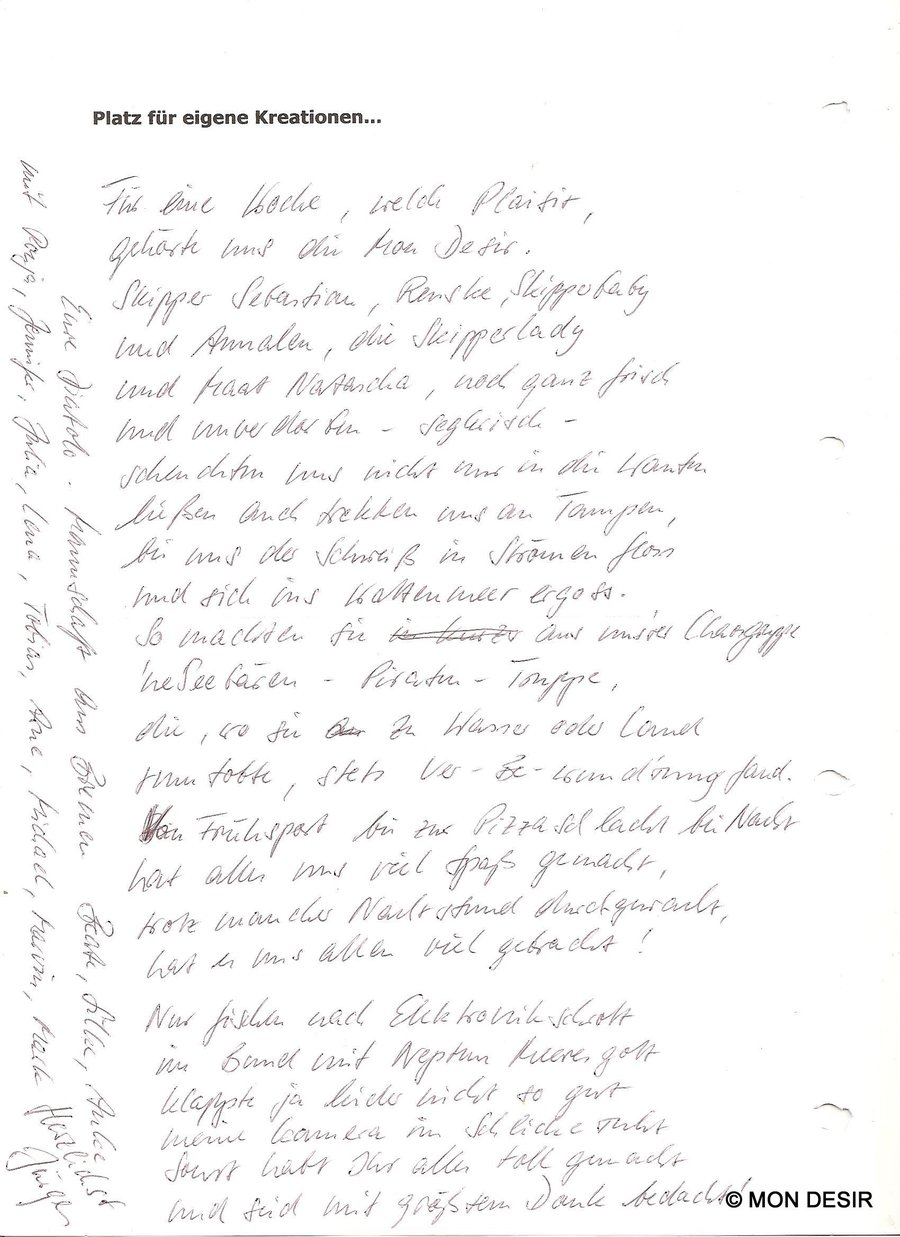 Platz für eigene Kreationen...
Für eine Woche, welch Plaisir,
gehörte uns die Mon Desir.
Skipper Sebastian, Renske, Skipperbaby
und Annalen, die Skipperlady
und Maat Natascha, noch ganz frisch
und unverdorben - seglerisch -
scheuchten uns nicht nur in die Wanten
ließen auch trekken uns an Tampen,
bis uns der Schweiß in Strömen floss
und sich ins Wattenmeer ergoss.
So machten sie in kurzer aus unsrer Chaosgruppe
'ne Seebären - Piraten - Truppe,
die, wo sie zu Wasser oder Land
rumtobte, stets Ver-Be-wund'rung fand.
Von Frühsport bis zur Pizzaschlacht bei Nacht
hat alles uns viel Spaß gemacht,
trotz mancher Nachtstund durchgewacht,
hat es uns allen viel gebracht!
Nur fischen nach Elektronikschrott
im Bund mit Neptun Meeresgott
klappte ja leider nicht so gut
meine Kamera im Schlicke ruht
Sonst habt Ihr alles toll gemacht
und seid mit größtem Dank bedacht!
Eure Mannschaft aus Bremen Beate, Silke, Anke
mit Ronja, Jennifer, Julia, Lena, Tobias, Arne, Michael, Marvin, Mark
Herzlichst
Jürgen
© MON DESIR